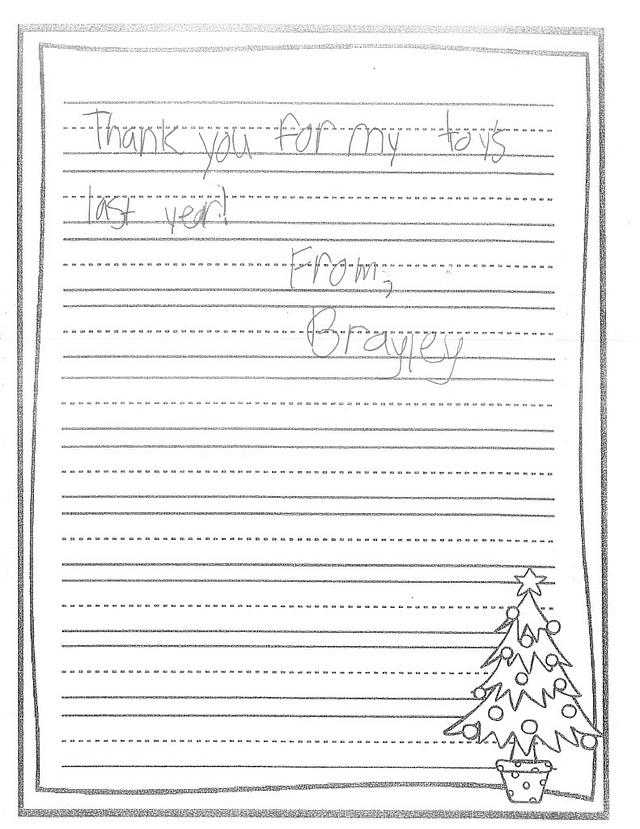 Thank you for my toys
last year!
From,
Brayley